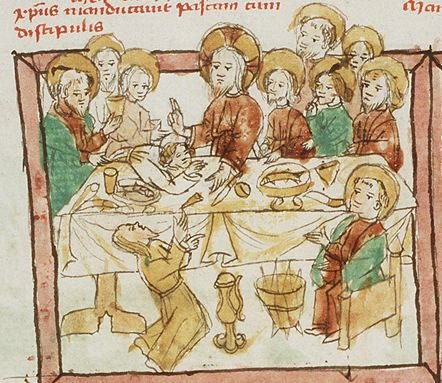 xp̄us manducauit pascam cum
discipulis